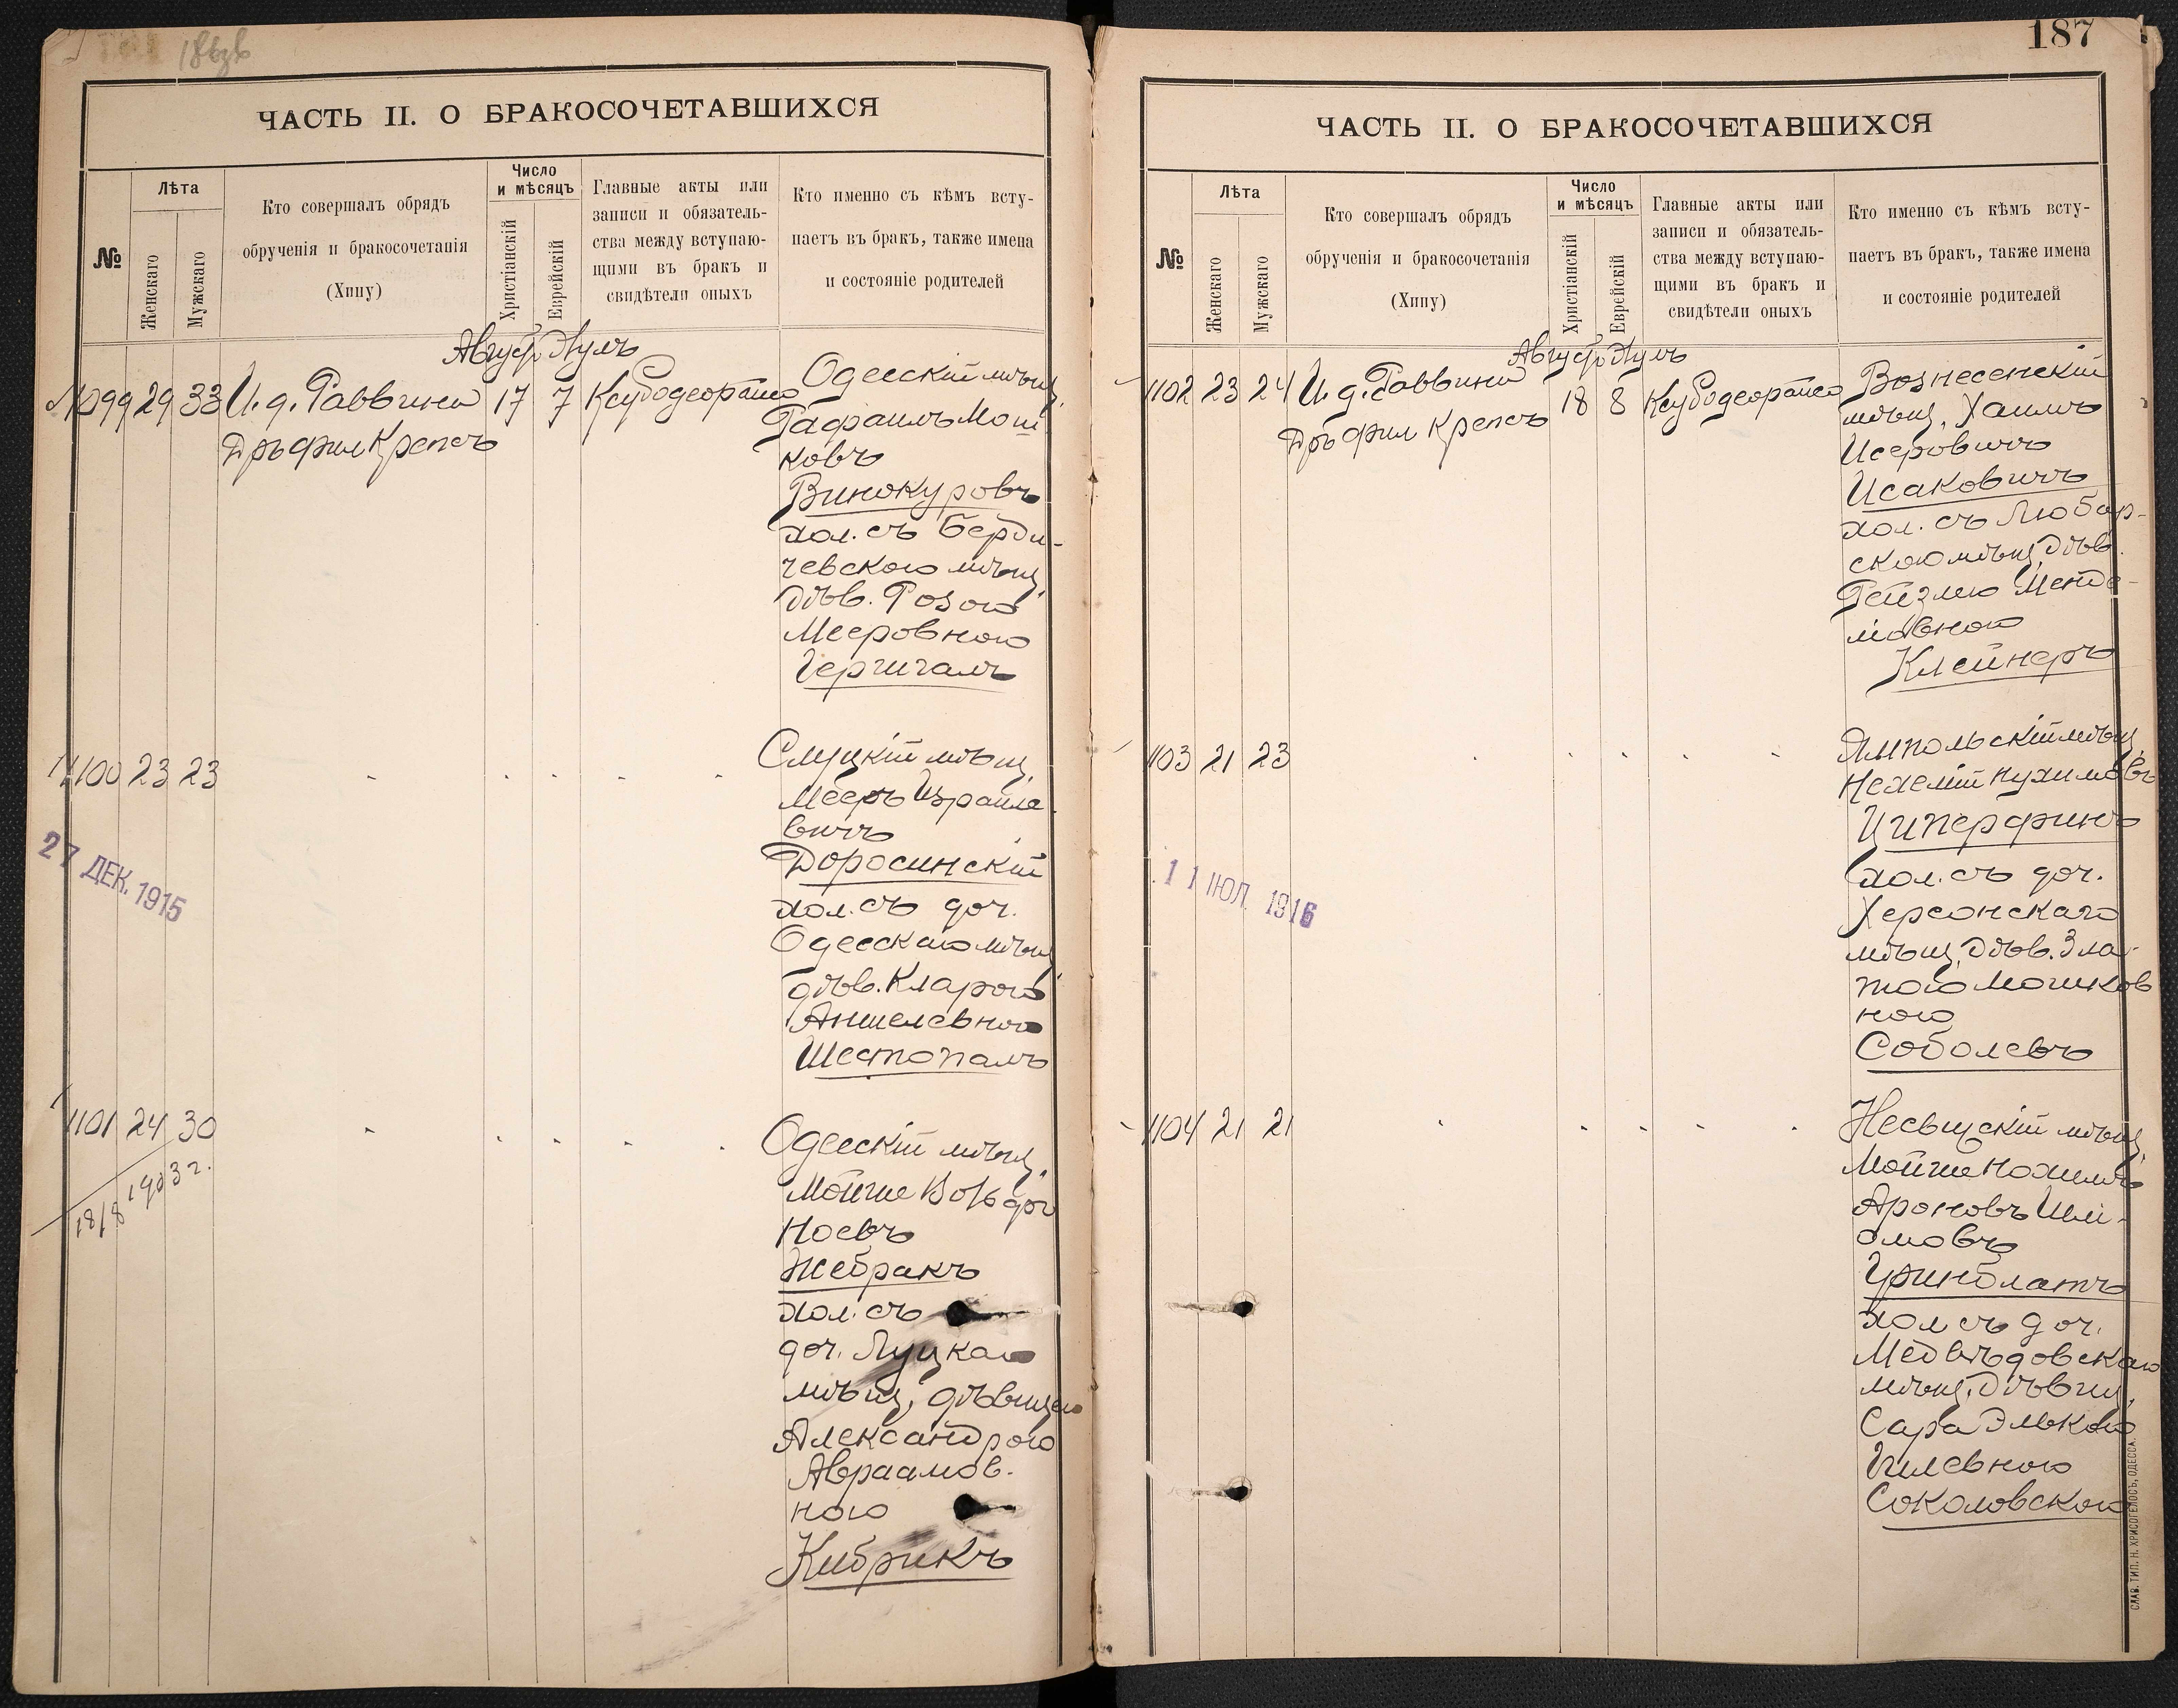 186об
ЧАСТЬ II. О БРАКОСОЧЕТАВШИХСЯ
№
Лѣта
Женскаго
Мужскаго
Кто совершалъ обрядъ
обрученія и бракосочетанія
(Хипу)
Число
и мѣсяцъ
Христіанскій
Еврейскій
Главные акты или
записи и обязатель-
ства между вступаю-
щими въ бракъ и
свидѣтели оныхъ
Кто именно съ кѣмъ всту-
паетъ въ бракъ, также имена
и состояніе родителей
Август Аулъ
1099 29 33 И. д. Раввина 17 7 Ксубодеорайсо
Дръ фил Крепсъ
Одесскій мѣщ.
Рафаилъ Мош
ковъ
Винокуровъ
хол. съ Берди-
чевскою мѣщ.
дѣв. Розою
Мееровною
Гергигалъ
1100 23 23
Слуцкій мѣщ.
Мееръ Израиле-
вичъ
Доросинскій
хол. съ доч.
Одесскаго мѣщ.
дѣв. Кларою
Аншелевною
Шестопалъ
27 ДЕК. 1915
1101 24 30
18/8 1903 г.
Одесскій мѣщ.
Мойше Вольф
Ноевъ
Жебракъ
хол. съ
доч. Луцкаго
мѣщ. дѣвицею
Александрою
Авраамов-
ною
Кибрикъ
187
ЧАСТЬ II. О БРАКОСОЧЕТАВШИХСЯ
№
Лѣта
Женскаго
Мужскаго
Кто совершалъ обрядъ
обрученія и бракосочетанія
(Хипу)
Число
и мѣсяцъ
Христіанскій
Еврейскій
Главные акты или
записи и обязатель-
ства между вступаю-
щими въ бракъ и
свидѣтели оныхъ
Кто именно съ кѣмъ всту-
паетъ въ бракъ, также имена
и состояніе родителей
Август Аулъ
1102 23 24 И. д. Раввина 18 8 Ксубодеорайсо
Дръ фил Крепсъ
Вознесенскій
мѣщ. Хаимъ
Исеровичъ
Исаковичъ
хол. съ Любар-
скою мѣщ. дѣв.
Рейзлею Менде-
левною
Клейнеръ
1103 21 23
Ямпольскій мѣщ.
Нехемій Нухимовъ
Циперфинъ
хол. съ доч.
Херсонскаго
мѣщ. дѣв. Зла-
тою Мошков
ною
Соболевъ
11 ІЮЛ. 1916
1104 21 21
Несвижскій мѣщ.
Мойше Нохимъ
Ароновъ Шлі-
омовъ
Гринблатъ
хол съ доч.
Медвѣдовскаго
мѣщ. дѣвиц.
Сара Элькою
Гилевною
Соколовскою
СЛАВ. ТИП. Н. ХРИСОГЕЛОСЪ, ОДЕССА.